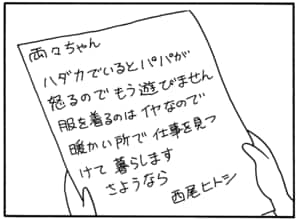 雨々ちゃん
ハダカでいるとパパが
怒るのでもう遊びません
服を着るのはイヤなので
暖かい所で仕事を見つ
けて暮らします
さようなら
西尾ヒトシ